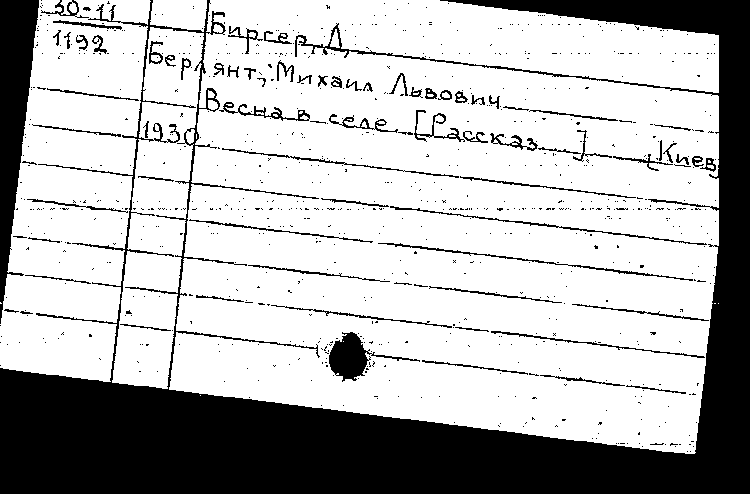 30-11
1192
Биргер, Д,
Берлянт, Михаил Львович
Весна в селе [Рассказ ] [Киев]
1930